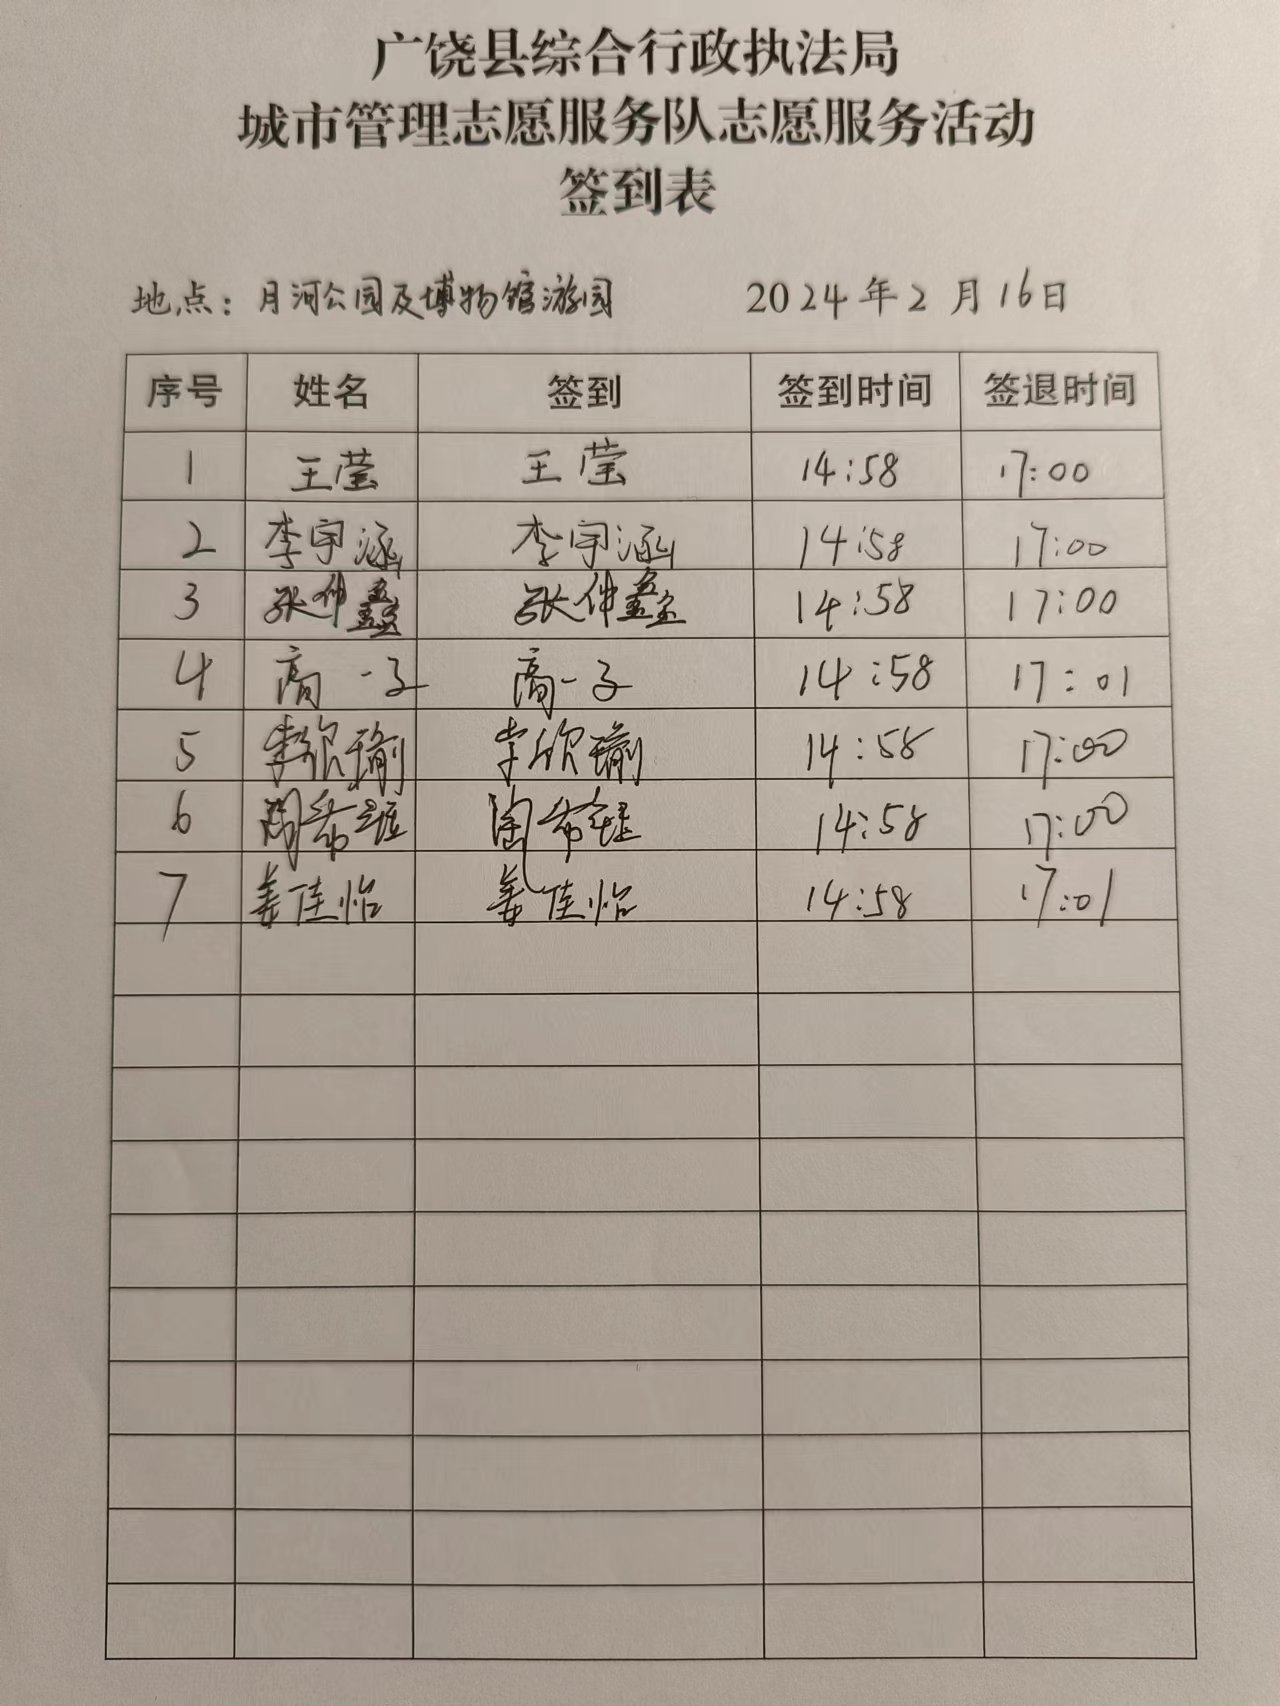 广饶县综合行政执法局
城市管理志愿服务队志愿服务活动
签到表
地点：月河公园及博物馆游园 2024年2月16日
序号 姓名 签到 签到时间 签退时间
1 王莹 王莹 14:58 17:00
2 李宇涵 李宇涵 14:58 17:00
3 张仲鑫 张仲鑫 14:58 17:00
4 高一子 高一子 14:58 17:01
5 李欣瑜 李欣瑜 14:58 17:00
6 陶希 陶希 14:58 17:00
7 姜佳怡 姜佳怡 14:58 17:01